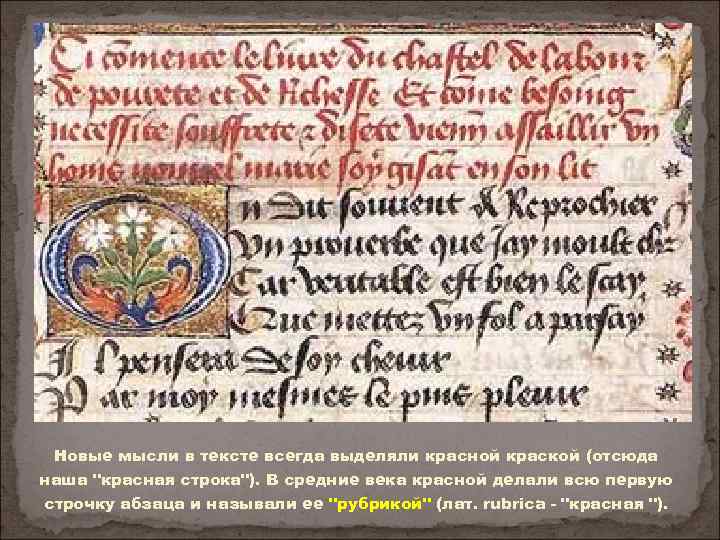 Ci cõmence le livre du chastel de labour
de povrete et de Richesse Et cõme besoing
necessite souffrete z disete vienñ assaillir vn
home nouvel marie soy gisãt en son lit
On dit souvent & Reprochier
Vn prouerbe que Jay moult chr
Car veritable est bien le scay
Que mettez vn fol a par say
Il pensera de soy cheuir
Par moy mesmes le puis pleuir
Новые мысли в тексте всегда выделяли красной краской (отсюда
наша "красная строка"). В средние века красной делали всю первую
строчку абзаца и называли ее "рубрикой" (лат. rubrica - "красная ").